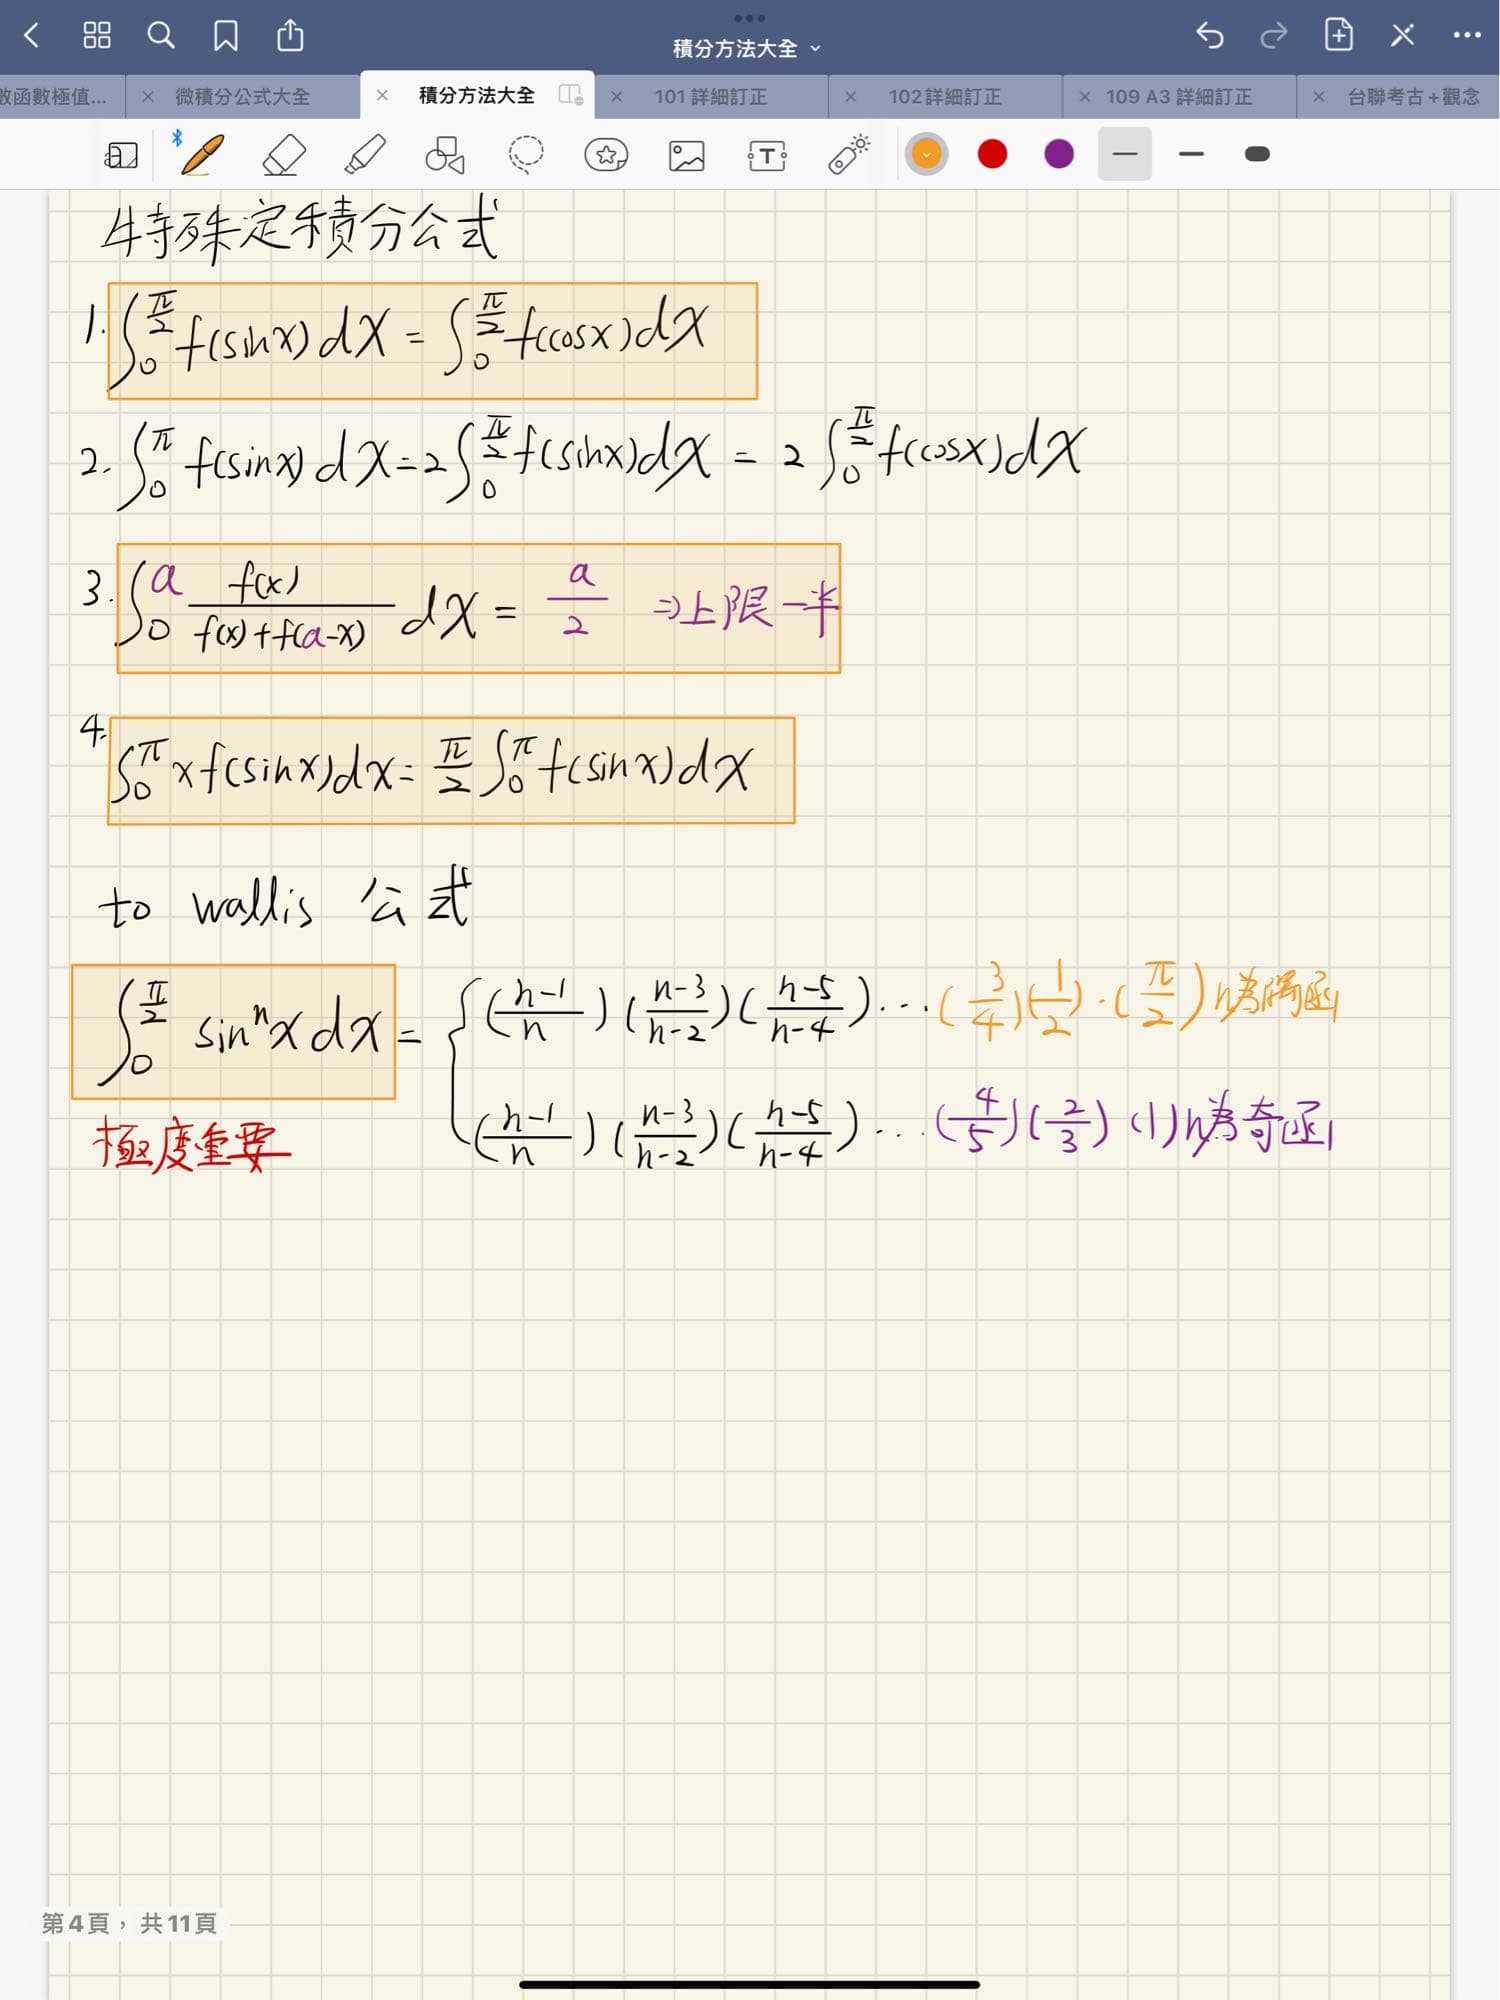 積分方法大全
數函數極值... 微積分公式大全 積分方法大全 101 詳細訂正 102詳細訂正 109 A3 詳細訂正 台聯考古+觀念
特殊定積分公式
1. ∫₀^(π/2) f(sinx) dx = ∫₀^(π/2) f(cosx) dx
2. ∫₀^π f(sinx) dx = 2∫₀^(π/2) f(sinx) dx = 2∫₀^(π/2) f(cosx) dx
3. ∫₀^a f(x)/(f(x)+f(a-x)) dx = a/2 ⇒上限一半
4. ∫₀^π x f(sinx) dx = π/2 ∫₀^π f(sinx) dx
to wallis 公式
∫₀^(π/2) sinⁿx dx = { ((n-1)/n) ((n-3)/(n-2)) ((n-5)/(n-4)) ... (3/4)(1/2)·(π/2) n為偶函
((n-1)/n) ((n-3)/(n-2)) ((n-5)/(n-4)) ... (4/5)(2/3) (1) n為奇函
極度重要
第4頁，共11頁